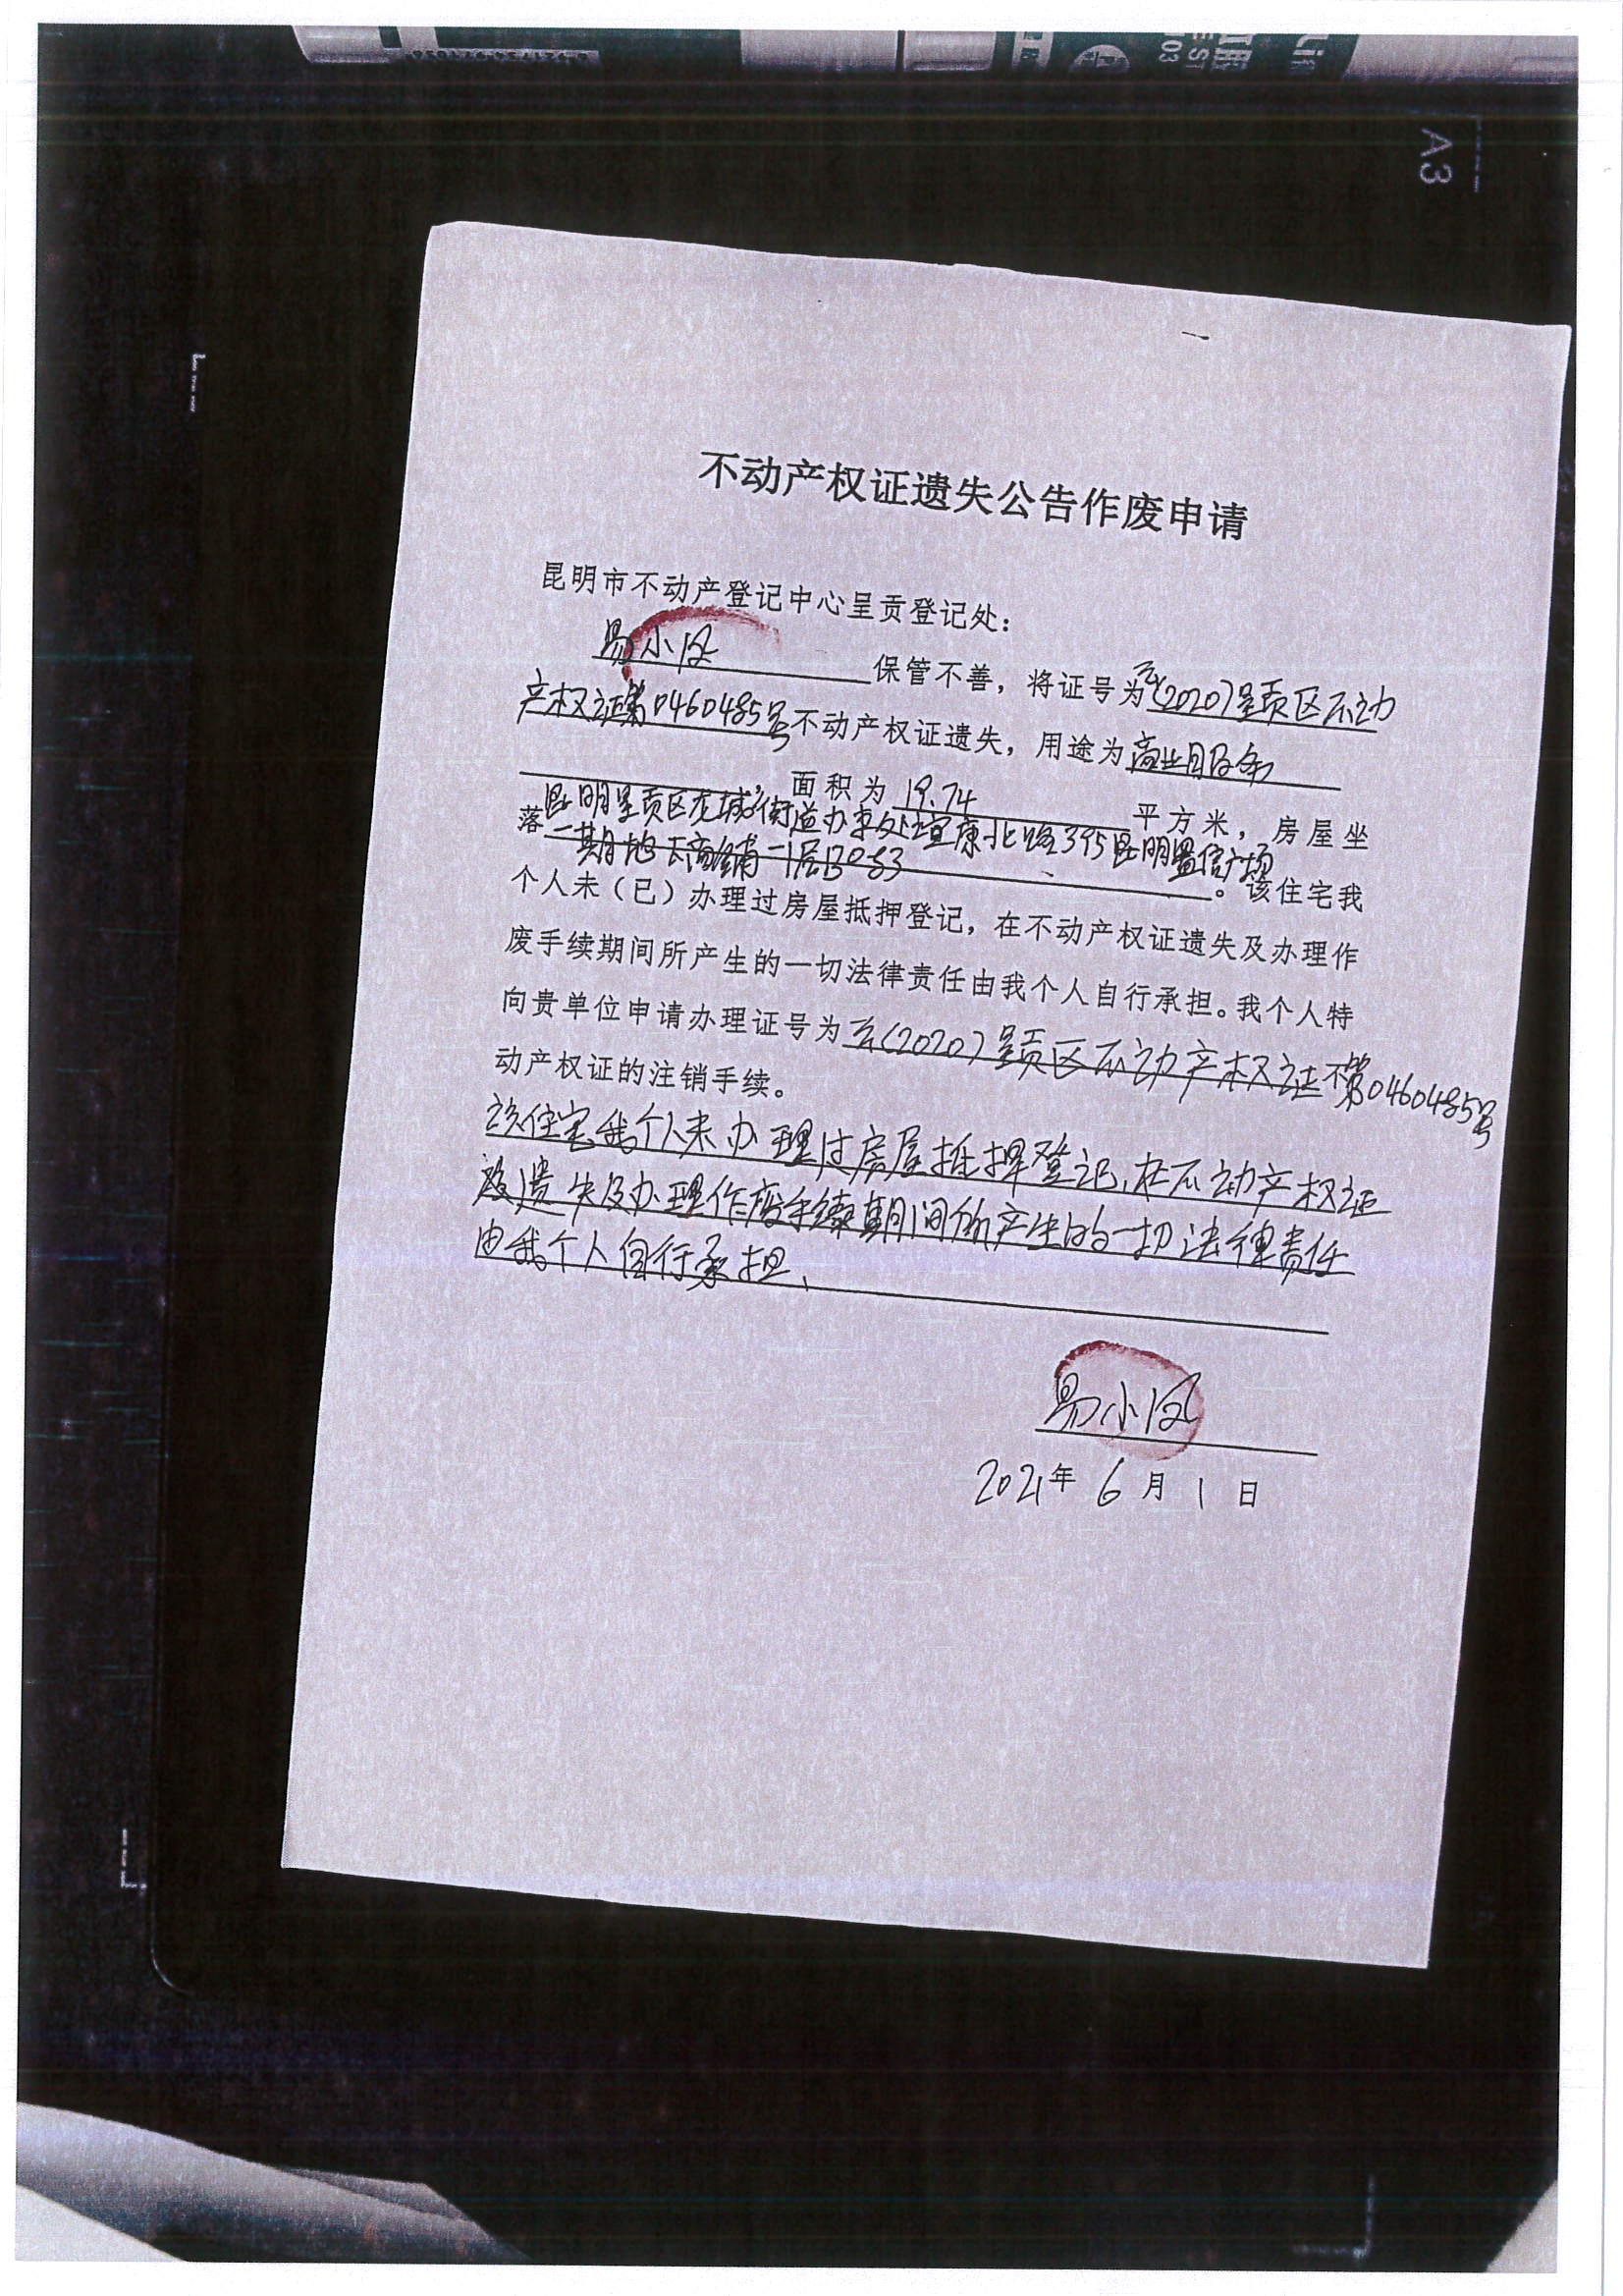 A3
不动产权证遗失公告作废申请
昆明市不动产登记中心呈贡登记处：
易小凤 保管不善，将证号为云(2020)呈贡区不动
产权证第0460485号不动产权证遗失，用途为商业服务
面积为 19.74 平方米，房屋坐
落昆明呈贡区龙城街道办事处宜康北路395昆明置信广场
一期地下商铺一层B083。该住宅我
个人未（已）办理过房屋抵押登记，在不动产权证遗失及办理作
废手续期间所产生的一切法律责任由我个人自行承担。我个人特
向贵单位申请办理证号为云(2020)呈贡区不动产权证第0460485号不
动产权证的注销手续。
该住宅我个人未办理过房屋抵押登记，在不动产权证
遗失及办理作废手续期间所产生的一切法律责任
由我个人自行承担、
易小凤
2021年 6 月 1 日